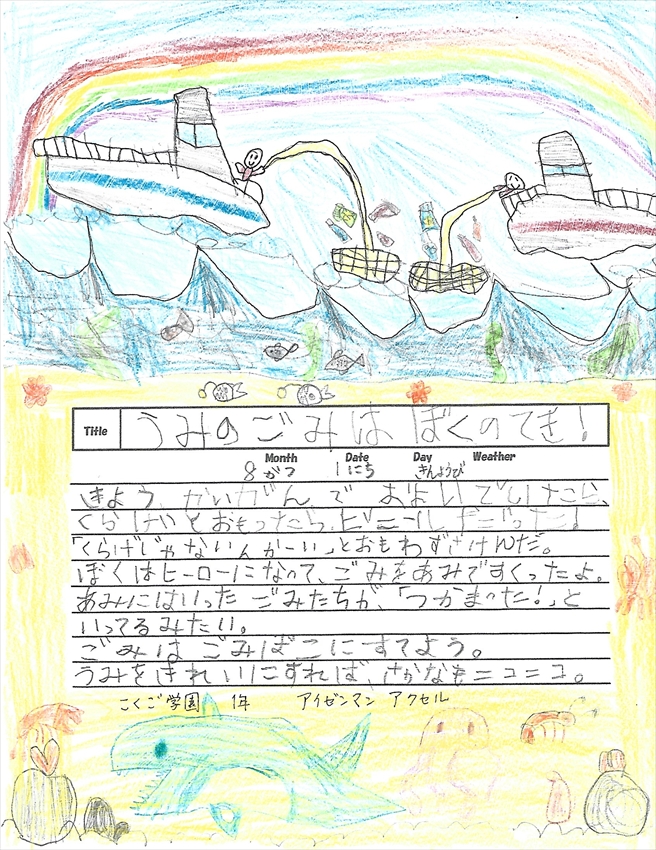 Title うみのごみは ぼくのてき!
Month Date Day Weather
8 がつ 1 にち きんようび
きょう、かいがんで およいでいたら、
くらげとおもったら、ビニールしだった!
「くらげじゃないんかーい」とおもわずさけんだ。
ぼくはヒーローになって、ごみをあみですくったよ。
あみにはいった ごみたちが、「つかまった!」と
いってるみたい。
ごみは ごみばこにすてよう。
うみをきれいにすれば、さかなもニコニコ。
こくご学園 1年 アイゼンマン アクセル